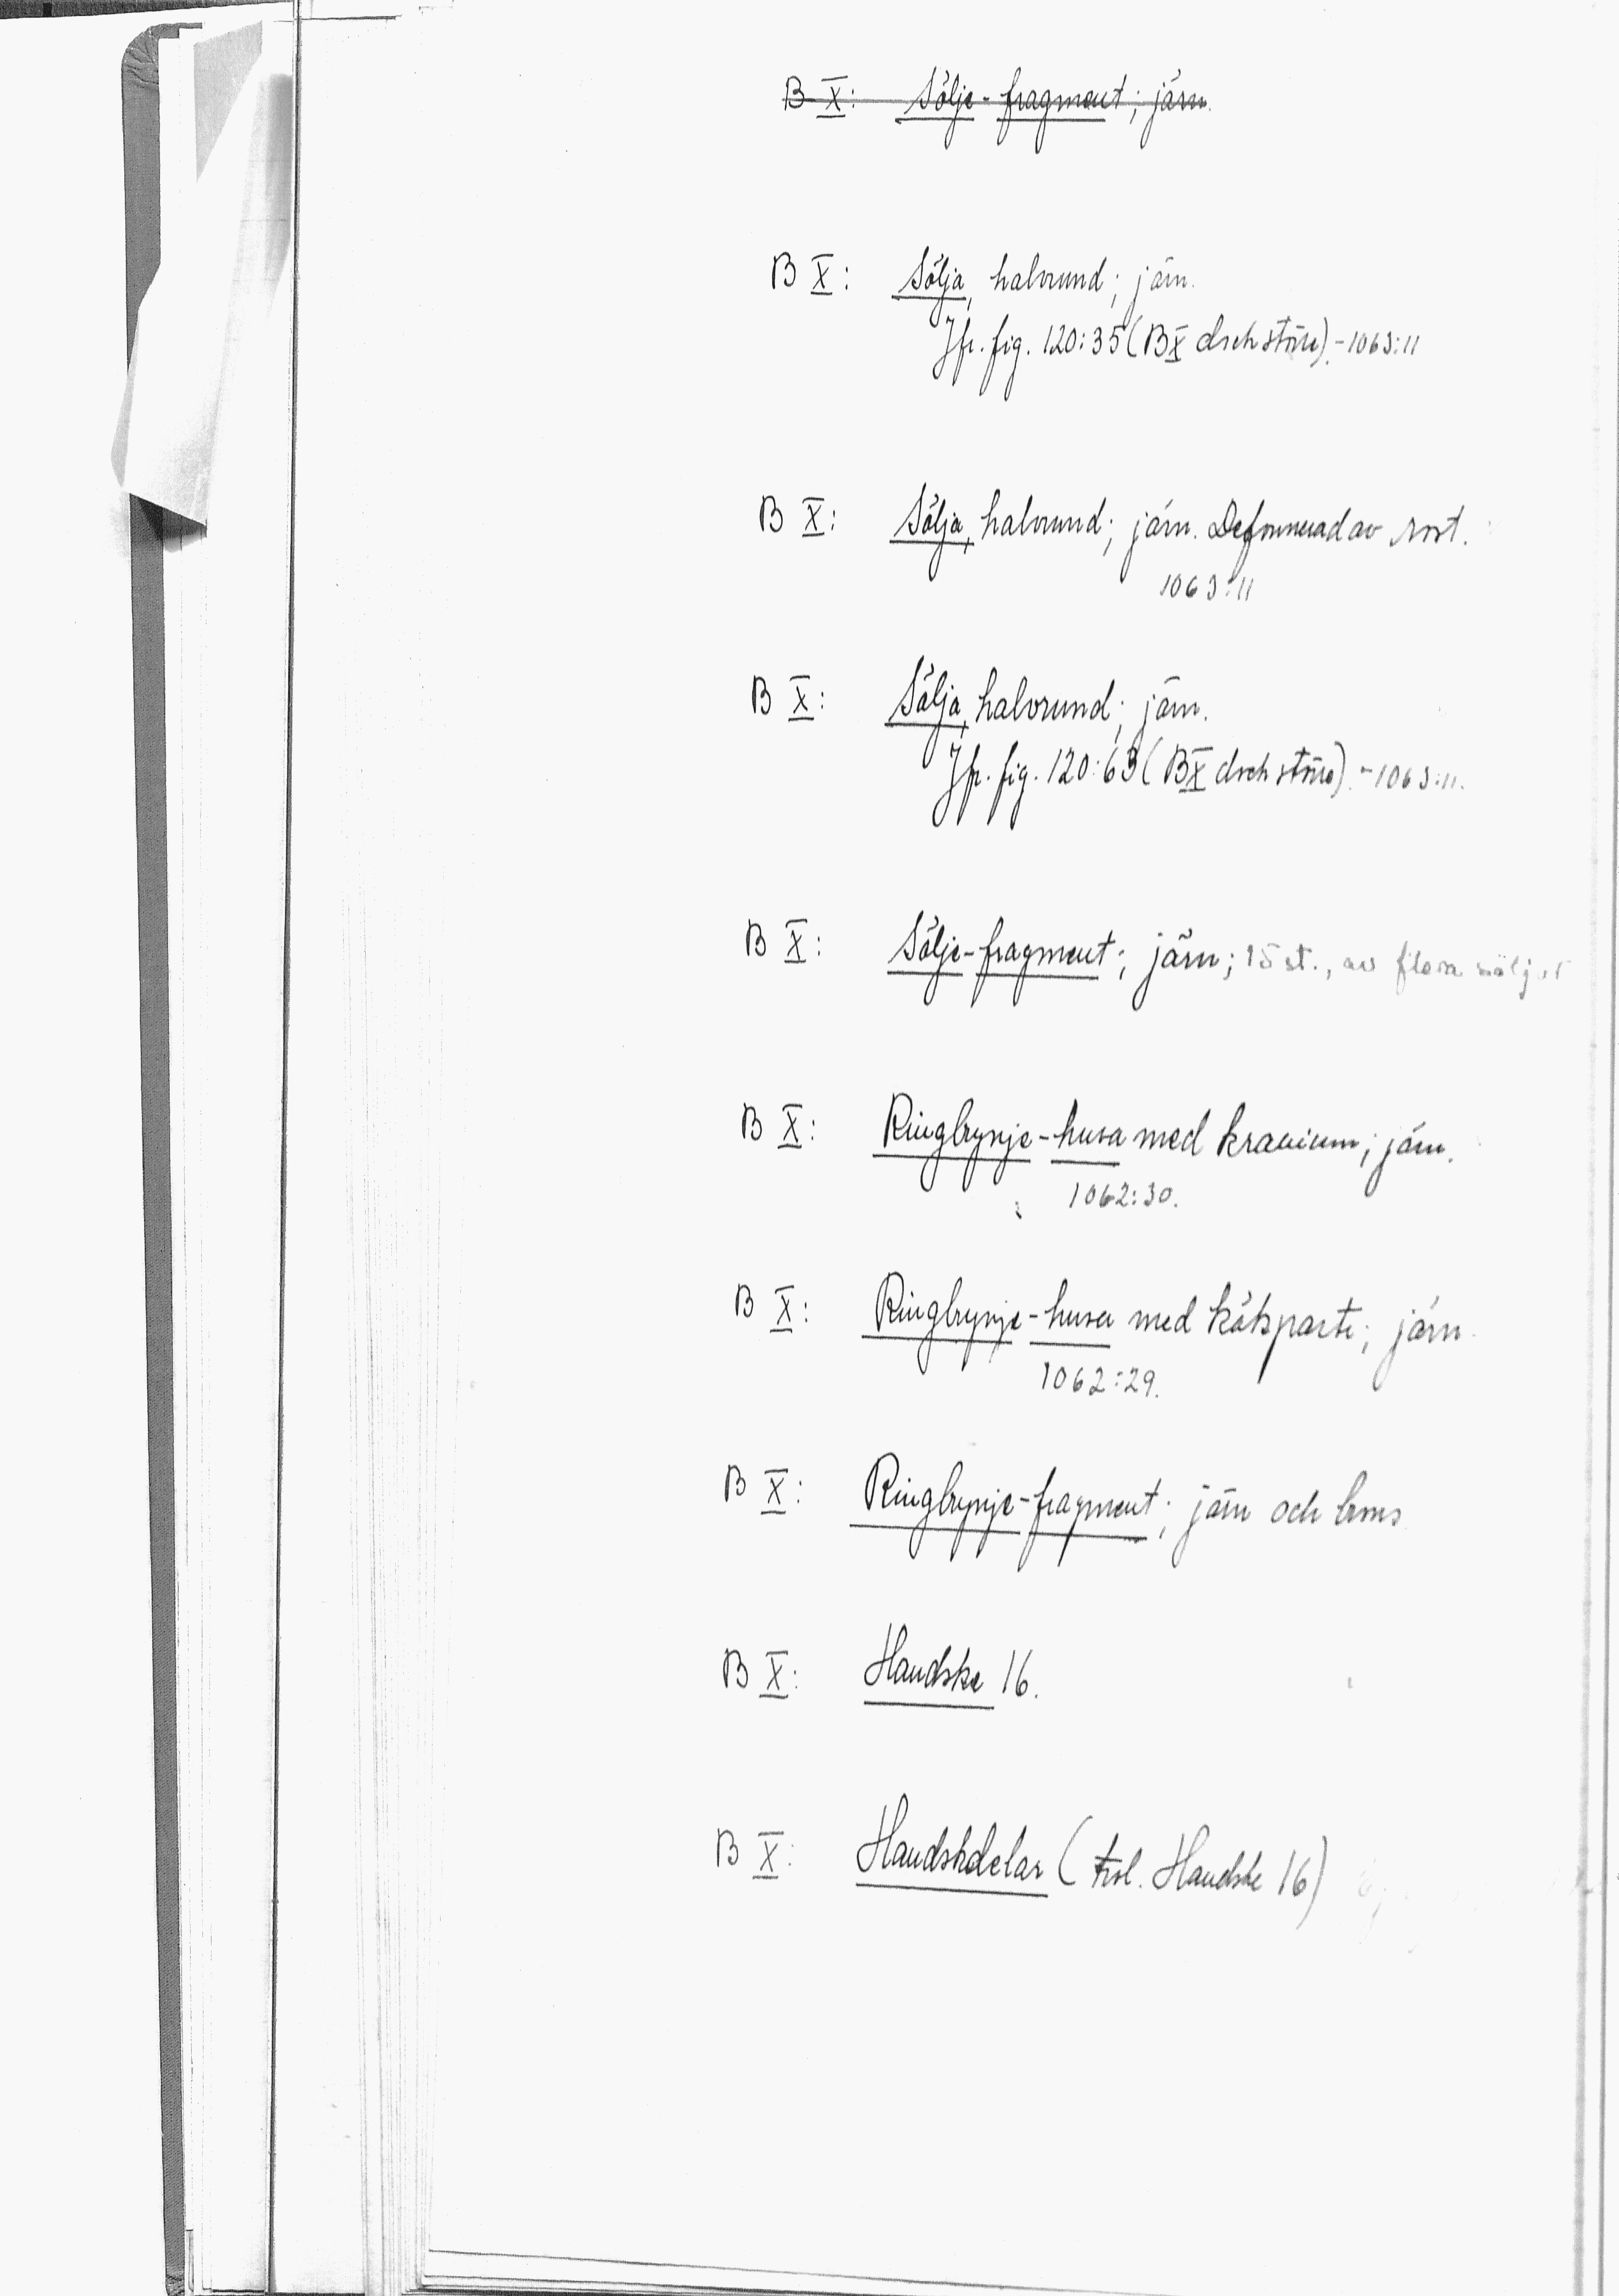 B X: Sölje-fragment; järn.
B X: Sölja, halvrund; järn.
Jfr. fig. 120:35 (B X dock större). - 1063:11
B X: Sölja, halvrund; järn. Deformerad av rost.
1063:11
B X: Sölja, halvrund; järn.
Jfr. fig. 120:63 (B X dock större). - 1063:11.
B X: Sölje-fragment; järn; 15 st., av flera söljor
B X: Ringbrynje-huva med kranium; järn.
1062:30.
B X: Ringbrynje-huva med käkparti; järn
1062:29.
B X: Ringbrynje-fragment; järn och brons
B X: Handske 16.
B X: Handskdelar (Handske 16)